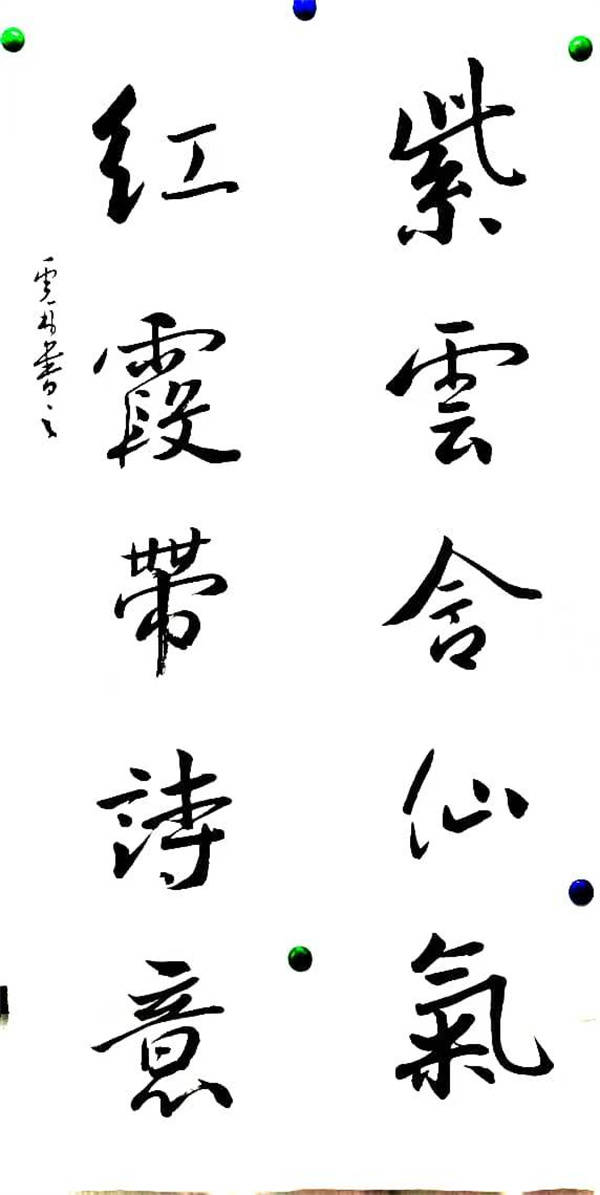 紫雲含仙氣
紅霞帶詩意
書之